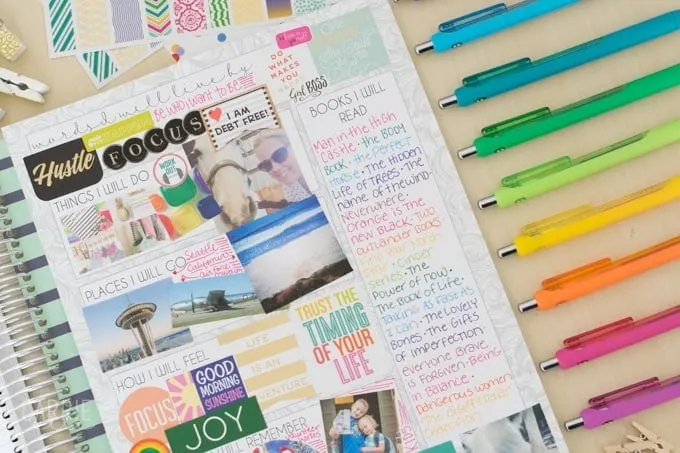 words I will live by
BE WHO I WANT TO BE
DO WHAT
MAKES
YOU
Girl BOSS
Hustle
FOCUS
I AM
DEBT FREE!
THINGS I WILL DO
WORK OUT
PLACES I WILL GO
Seattle
California
air force
museum
TRUST THE
TIMING
OF YOUR
LIFE
HOW I WILL FEEL
LIFE
IS AN
FOCUS
GOOD
MORNING
SUNSHINE
JOY
WILL REMEMBER
BOOKS I WILL
READ
Man in the High
Castle • the BODY
BOOK • the Perfect
Horse • The Hidden
Life of Trees • The
name of the wind
Neverwhere •
Orange is the
new Black • Two
outlander Books
series • The
Power of now •
The Book of Life •
Talking as Fast as
I Can • The Lovely
Bones • The Gifts
of imperfection
everyone Brave
is Forgiven • Being
in Balance •
Dangerous women